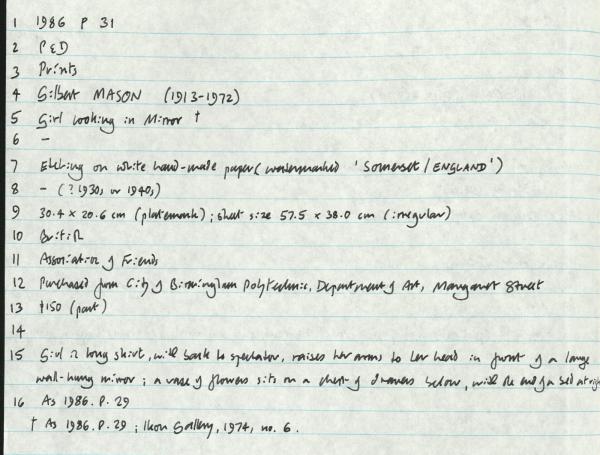 1 1986 P 31
2 P&D
3 Prints
4 Gilbert MASON (1913-1972)
5 Girl looking in Mirror †
6 -
7 Etching on white hand-made paper (watermarked 'SOMERSET / ENGLAND')
8 - (? 1930s or 1940s)
9 30.4 x 20.6 cm (platemark); sheet size 57.5 x 38.0 cm (irregular)
10 British
11 Association of Friends
12 Purchased from City of Birmingham Polytechnic, Department of Art, Margaret Street
13 †150 (part)
14
15 Girl in long skirt, with back to spectator, raises her arms to her head in front of a large
wall-hung mirror; a vase of flowers sits on a chest of drawers below, with the end of a bed at right
16 As 1986.P.29
† As 1986.P.29; Ikon Gallery, 1974, no. 6.